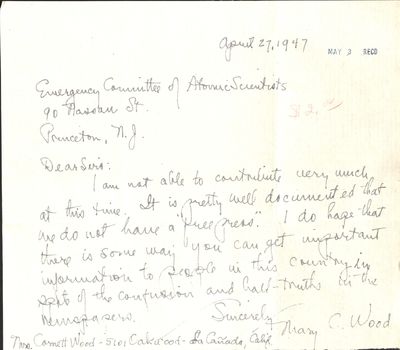 April 27, 1947
MAY 3 RECD
Emergency Committee of Atomic Scientists
90 Nassau St.
$2.00
Princeton, N.J.
Dear Sirs:
I am not able to contribute very much
at this time. It is pretty well documented that
we do not have a "free press". I do hope that
there is some way you can get important
information to people in this country in
spite of the confusion and half-truths in the
newspapers.
Sincerely,
Mary C. Wood
Mrs. Cornett Wood - 5101 Oakwood - La Cañada, Calif.